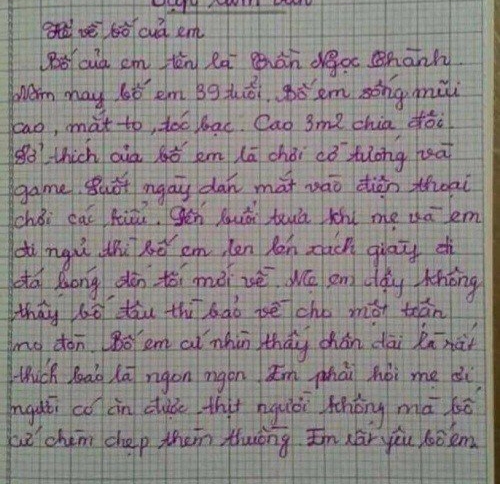 Tập làm văn
Tả về bố của em
Bố của em tên là Trần Ngọc Thành.
Năm nay bố em 39 tuổi. Bố em sống mũi
cao, mắt to, tóc bạc. Cao 3m2 chia đôi.
Sở thích của bố em là chơi cờ tướng và
game. Suốt ngày dán mắt vào điện thoại
chơi các kiểu. Đến buổi trưa khi mẹ và em
đi ngủ thì bố em len lén xách giầy đi
đá bóng đến tối mới về. Mẹ em dậy không
thấy bố đâu thì bảo về cho một trận
no đòn. Bố em cứ nhìn thấy chân dài là rất
thích bảo là ngon ngon. Em phải hỏi mẹ ơi
người có ăn được thịt người không mà bố
cứ chẹm chẹp thèm thuồng. Em rất yêu bố em.